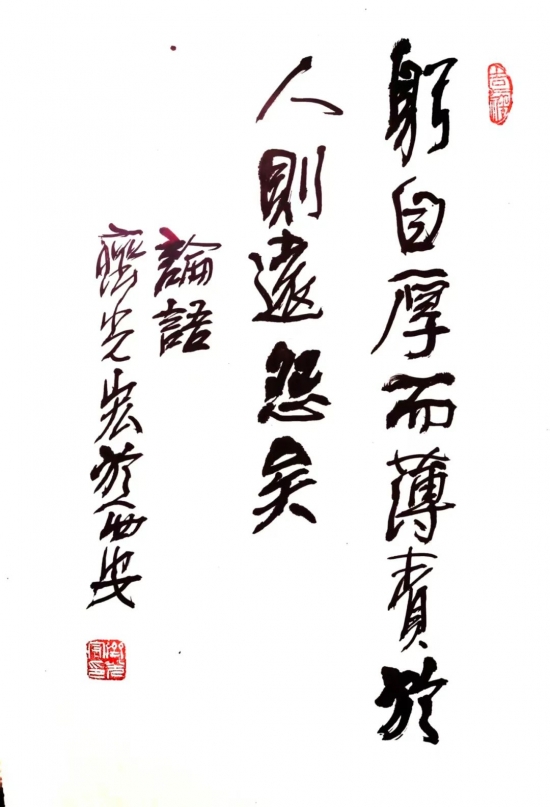 躬自厚而薄責於
人則遠怨矣
論語
光宏於西安